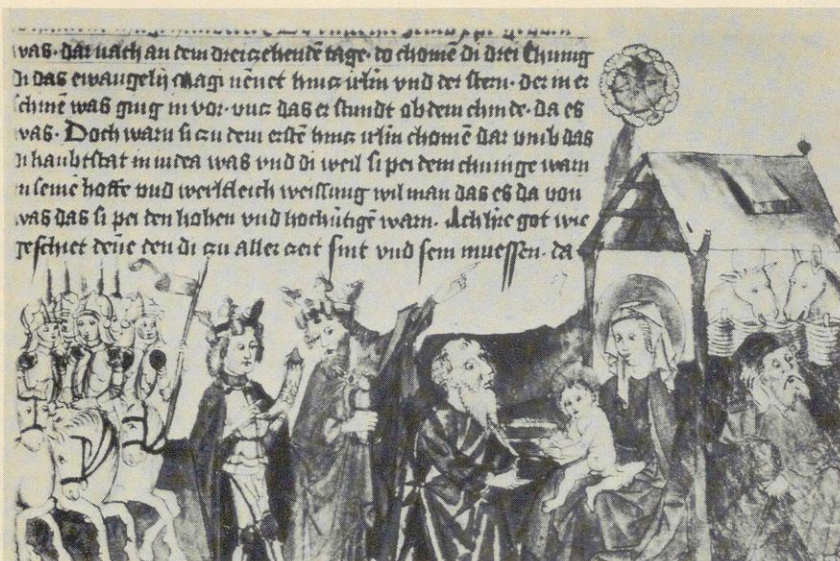 was· dar nach an dem dreizehentē tage· do chomē di drei Chunig
di das ewangelij Magi nēnet hincz irlm und der stern· der in er
schinē was ging in vor· uncz das er stundt ob dem chinde· da es
was· Doch warn si zu dem erstē hincz irlm chomē dar umb das
di haubtstat in iudea was und di weil si pei dem chunige warn
in seinē hoffe und werltleich weisung wil man das es da von
was das si pei den hohen und hochūtigē warn· Ach hre got wie
geschiet denē den di zu aller zeit sint und sein muessen· da